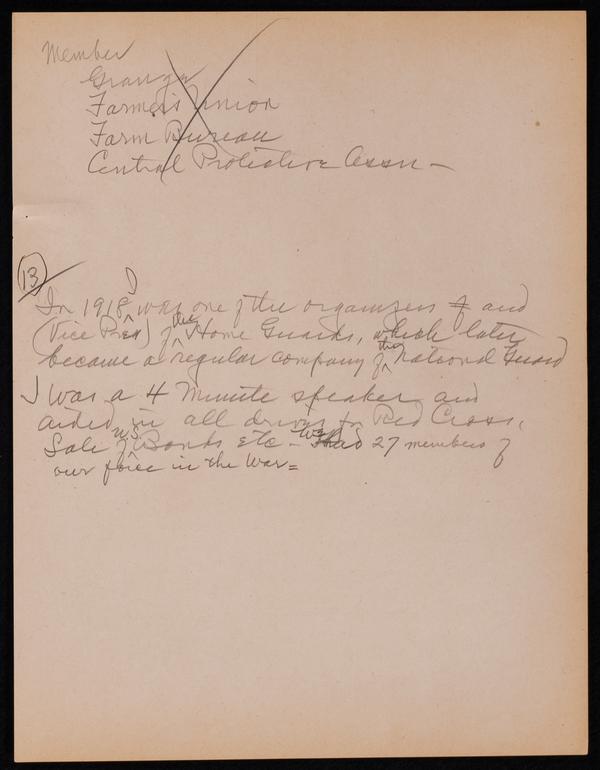 Member
Grange
Farmers Union
Farm Bureau
Central Protective Assn -
13
In 1918 I was one of the organizers of and
(Vice Pres) of the Home Guards, which later
became a regular company of the National Guard
I was a 4 Minute speaker and
aided in all drives for Red Cross,
Sale of US Bonds etc - We had 27 members of
our force in the War =